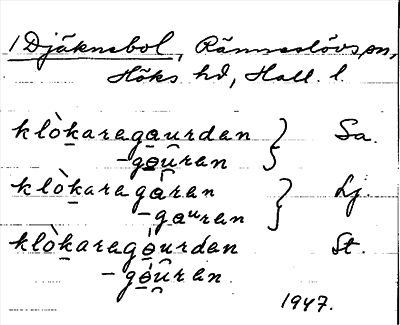 /Djäknebol, Ränneslövs sn,
Höks hd, Hall. l.
klòkaragaurdan } Sa.
-gaûran
klòkaragáran } Lj.
-gauran
klòkaragáurdan St.
-gáûran
1947.